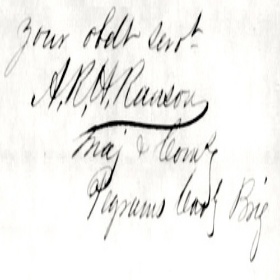 your obdt servt
A. R. H. Ranson
Maj & Comdg
Pegrams Cav Brig